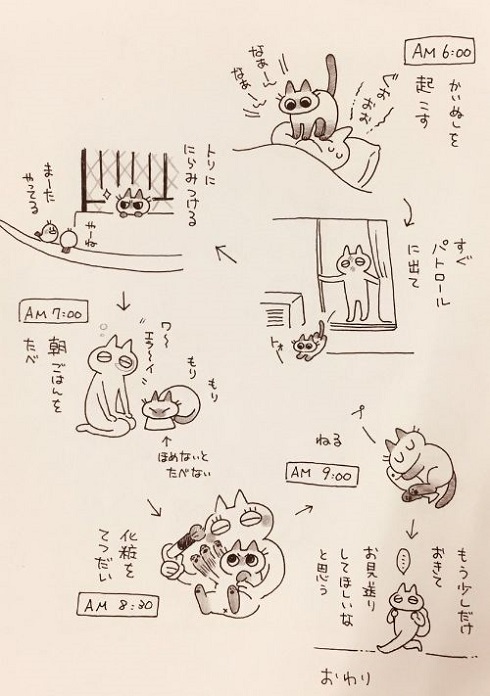 AM 6:00
かいぬしを
起こす
なぁーん
なぁーん
じょお
おお
すぐ
パトロール
に出て
トッ
トリに
にらみつける
まーた
やってる
やーね
AM 7:00
朝ごはんを
たべ
ワ〜
エラ〜イ
もり
もり
ほめないと
たべない
化粧を
てつだい
AM 8:30
ねる
AM 9:00
もう少しだけ
おきて
お見送り
してほしいな
と思う
おわり